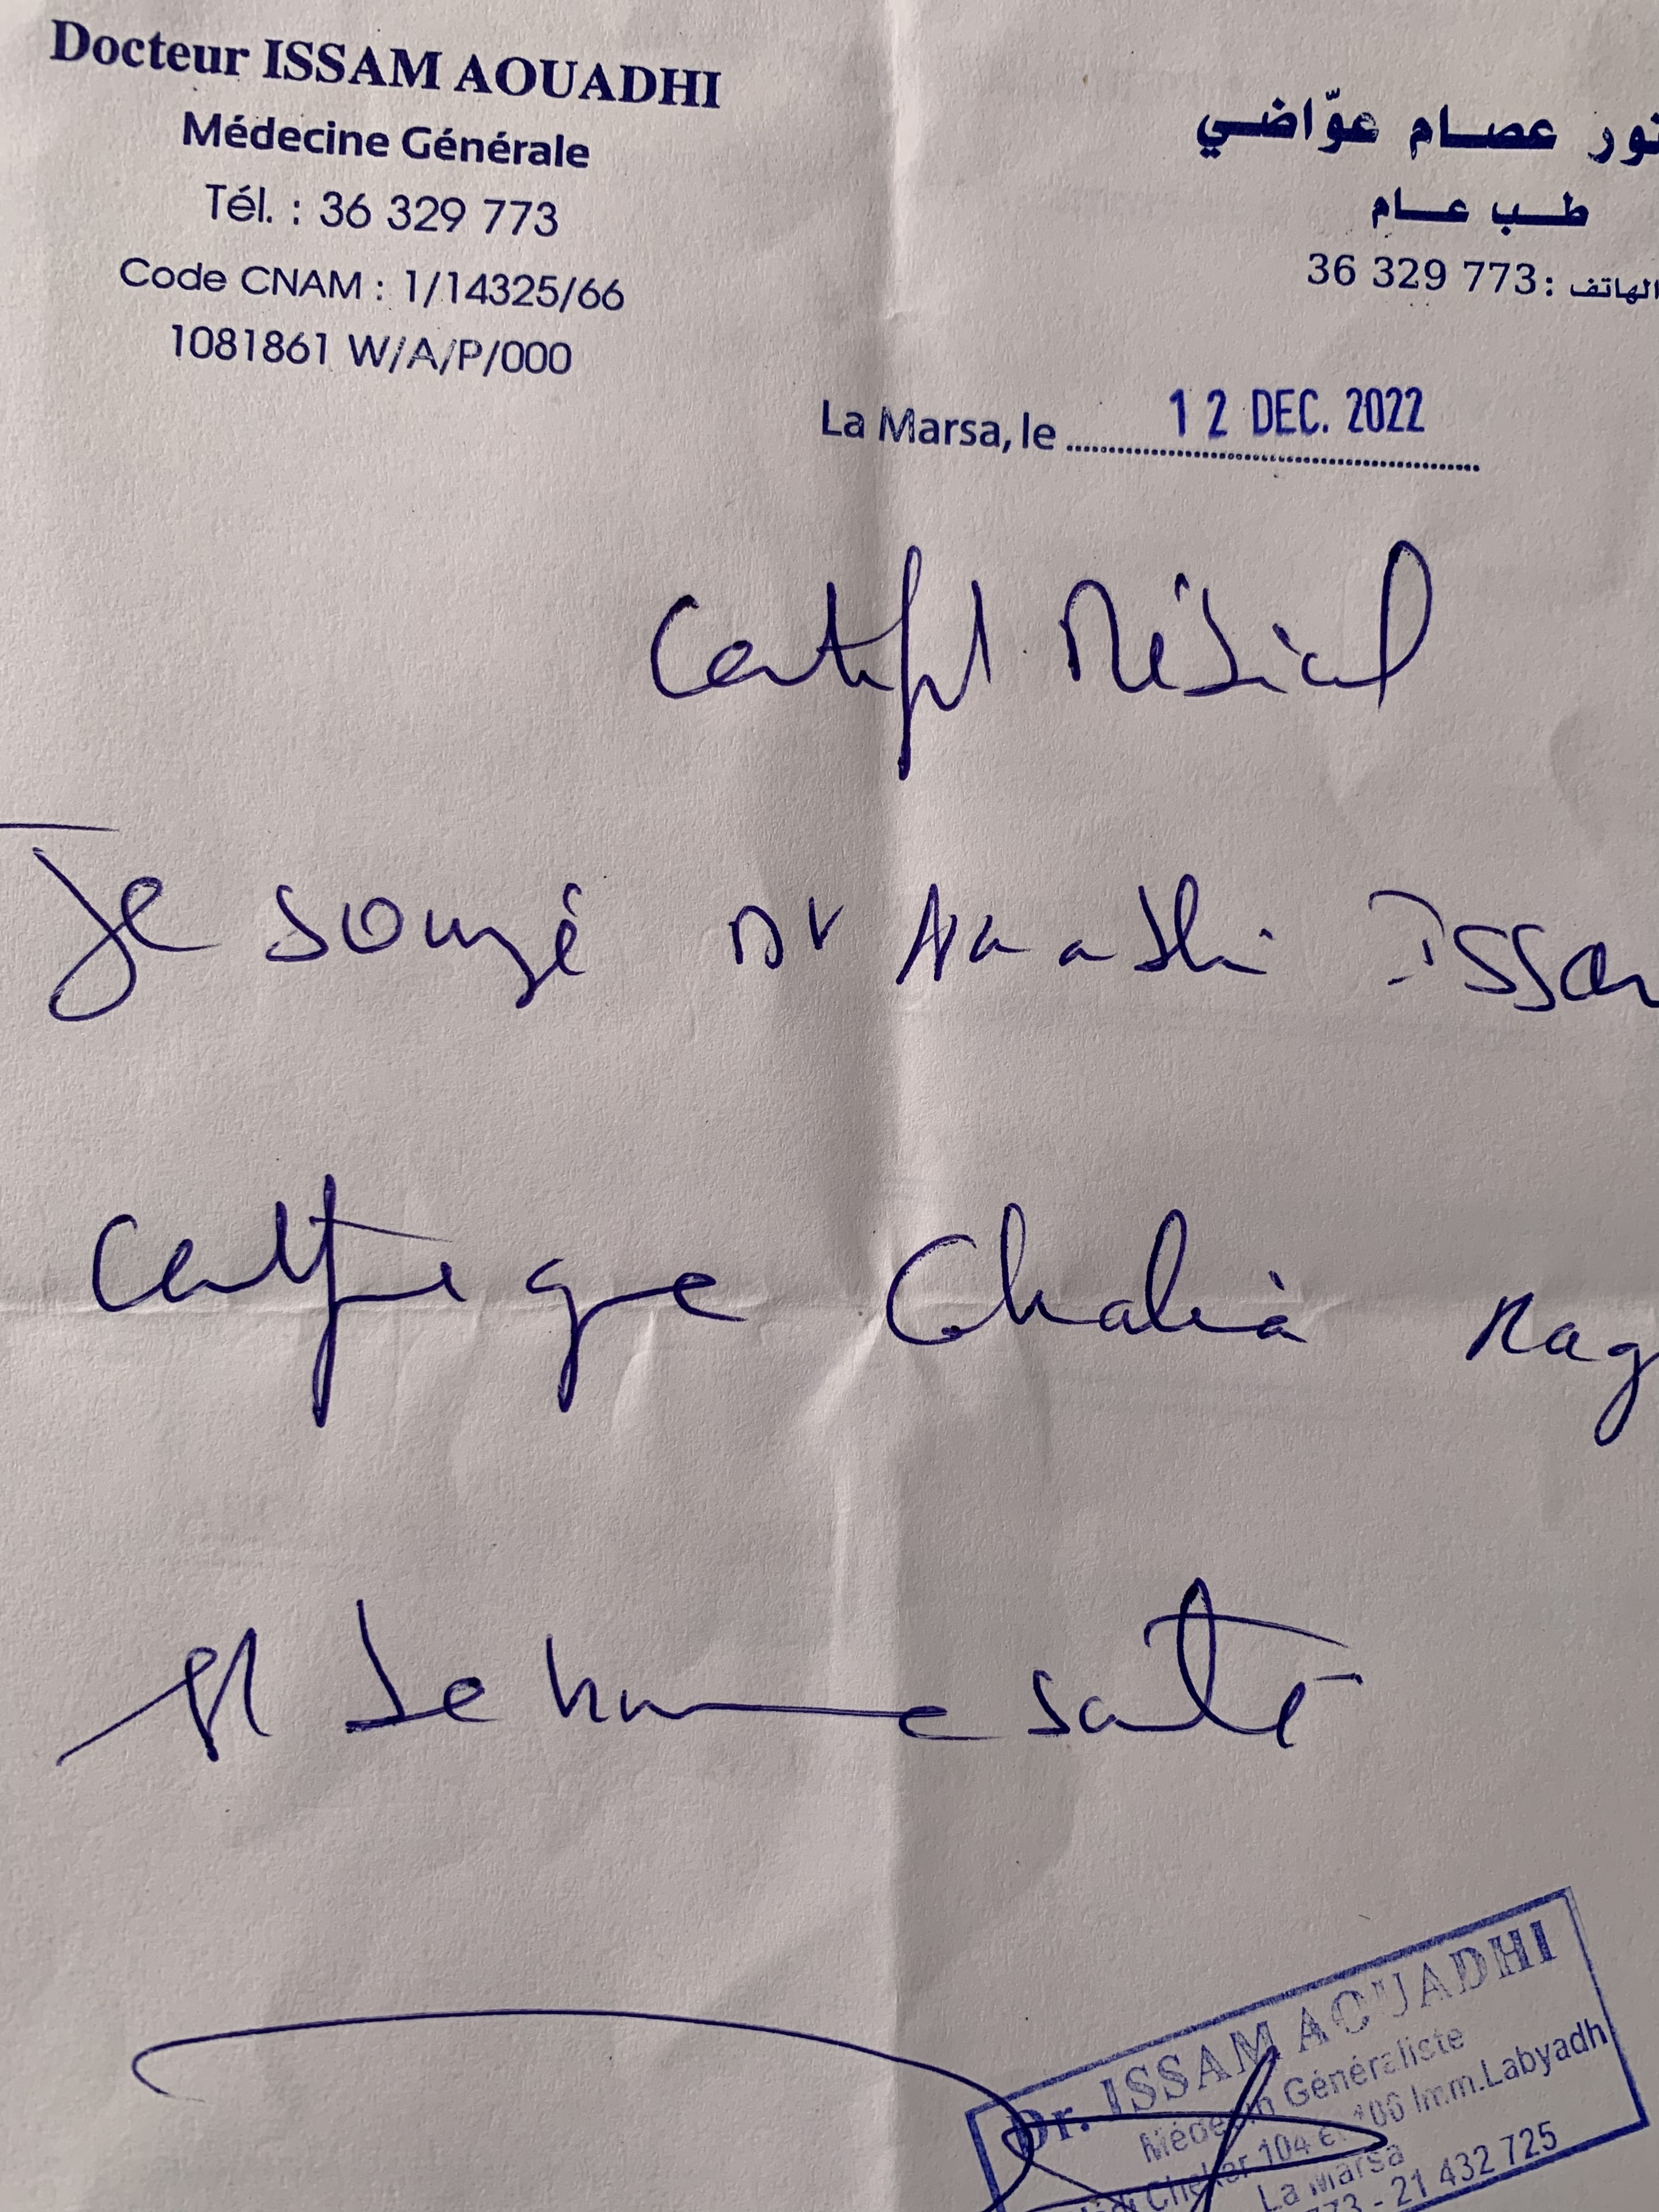 Docteur ISSAM AOUADHI
Médecine Générale
Tél. : 36 329 773
Code CNAM : 1/14325/66
1081861 W/A/P/000
تور عصام عوّاضي
طب عام
الهاتف : 773 329 36
La Marsa, le 12 DEC. 2022
Certificat Médical
Je soussigné Dr Aouadhi Issam
Certifie que Ghalia Rag
est de bonne santé
Dr. ISSAM AOUADHI
Médecin Généraliste
Cheker 104 et 106 Imm.Labyadh
La Marsa
773 - 21 432 725